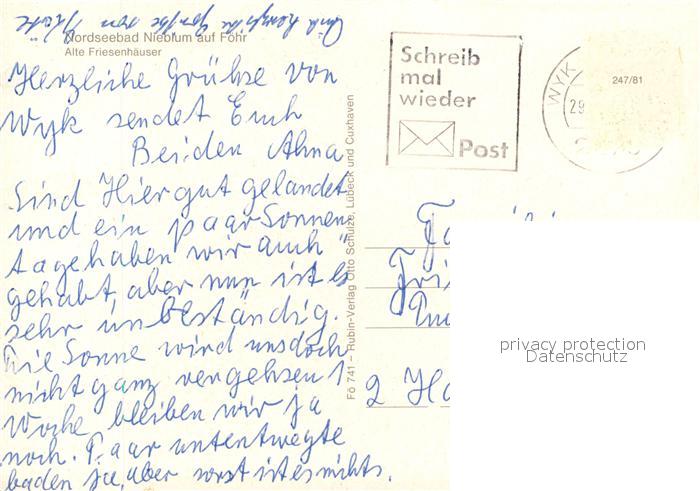 Auch herzliche Grüße von
Nordseebad Nieblum auf Föhr
Alte Friesenhäuser
Herzliche Grühse von
Wyk sendet Euch
Beiden Ahna
Sind Hier gut gelandet
und ein paar Sonnen
tage haben wir auch
gehabt, aber nun ist es
sehr unbeständig.
Die Sonne wird uns doch
nicht ganz vergehsen 1
Woche bleiben wir ja
noch. Paar untentwegte
baden ja, aber sonst ist es nichts.
Fö 741 – Rubin-Verlag Otto Schulze, Lübeck und Cuxhaven
Schreib
mal
wieder
Post
WYK
29
247/81
Fa
Fri
2 Ha
privacy protection
Datenschutz